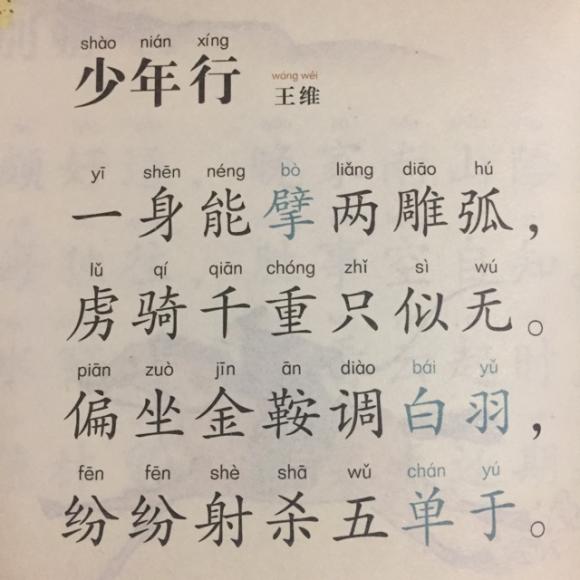 shào nián xíng
少年行
wáng wéi
王维
yī shēn néng bò liǎng diāo hú
一身能擘两雕弧，
lǔ qí qiān chóng zhǐ sì wú
虏骑千重只似无。
piān zuò jīn ān diào bái yǔ
偏坐金鞍调白羽，
fēn fēn shè shā wǔ chán yú
纷纷射杀五单于。